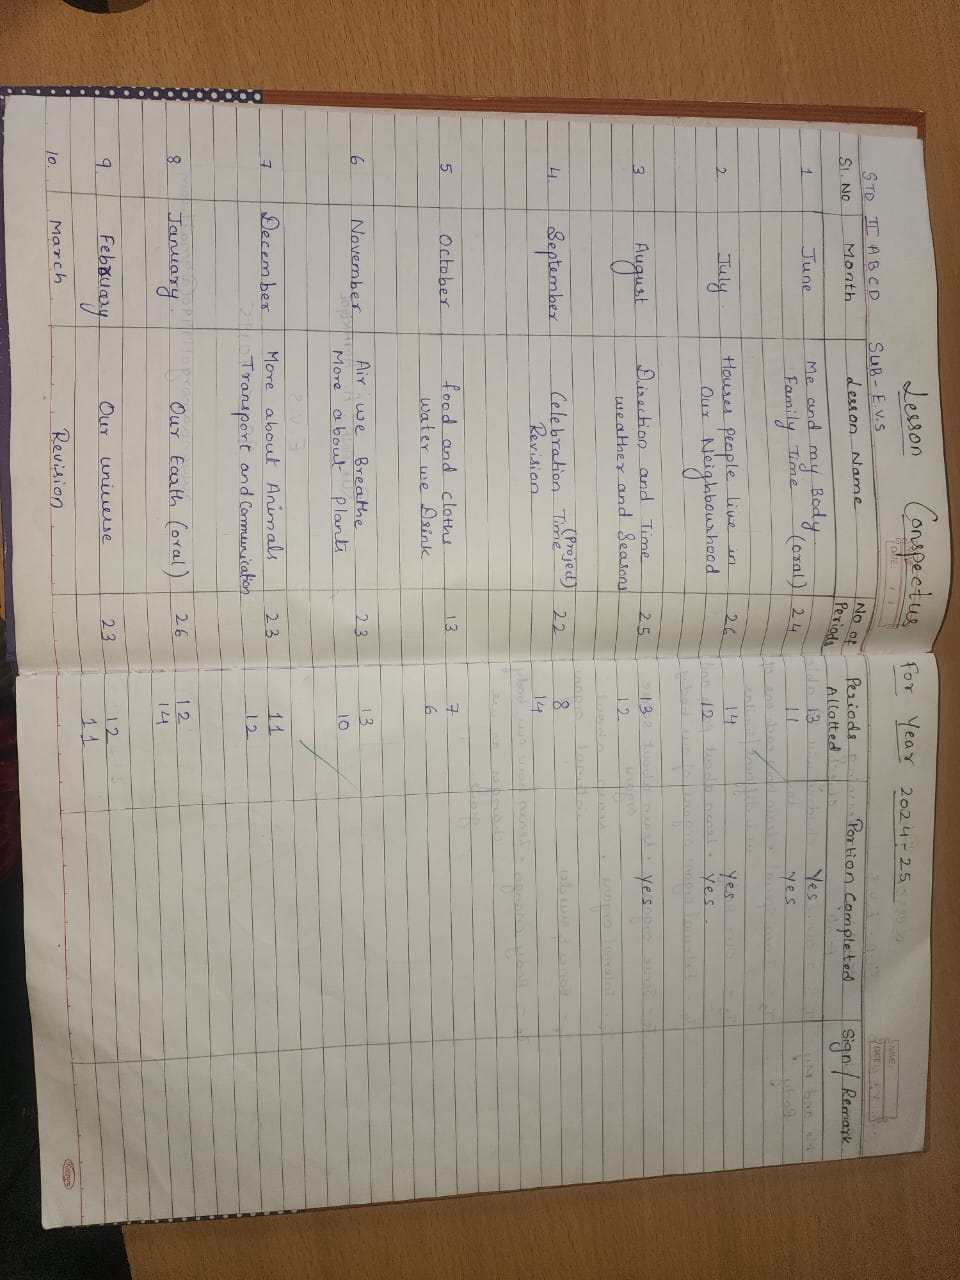 Lesson Conspectus For Year 2024-25
STD II A B C D SUB - E.V.S
Sl. No Month Lesson Name No of Periods Periods Allotted Portion Completed Sign / Remark
1 June Me and my Body 13 Yes
Family Time (oral) 24 11 Yes
2 July Houses people live in 26 14 Yes
Our Neighbourhood 12 Yes.
3 August Direction and Time 25 13 Yes
weather and Seasons 12
4. September Celebration Time (Project) 22 8
Revision 14
5 October food and cloths 13 7
water we Drink 6
6 November Air we Breathe 23 13
More about Plants 10
7 December More about Animals 23 11
Transport and Communication 12
8 January. Our Earth (oral) 26 12
14
9. February Our universe 23 12
11
10. March Revision